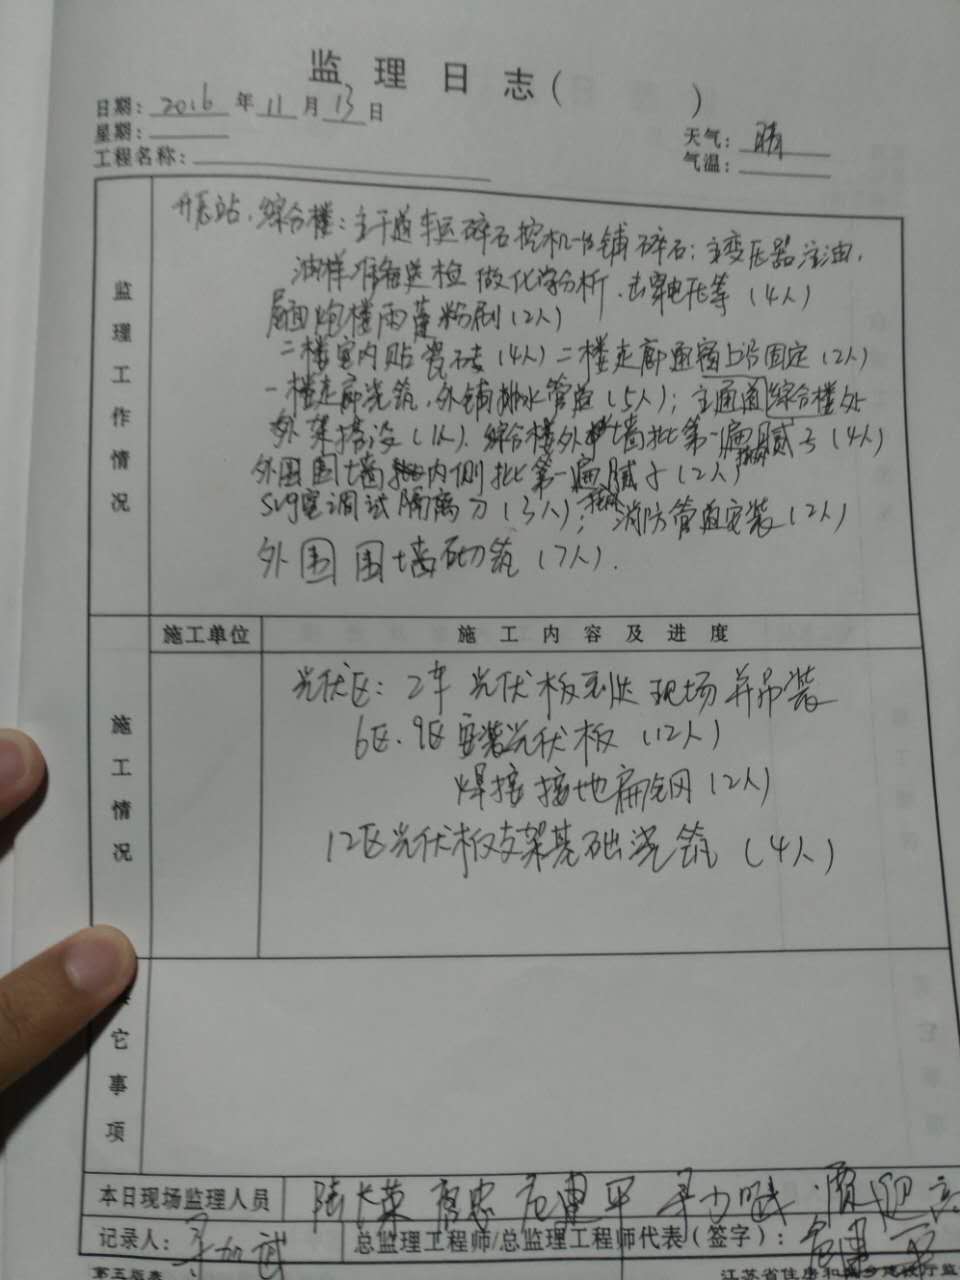 监理日志(          )
日期: 2016 年 11 月 13 日
星期:
天气: 晴
工程名称:
气温:
监理工作情况
开关站、综合楼：主干道车运碎石挖机一台铺碎石；主变压器注油，
油样准备送检做化学分析、击穿电压等（4人）
屋面炮楼雨蓬粉刷（2人）
二楼室内贴瓷砖（4人）二楼走廊通窗上沿固定（2人）
一楼走廊浇筑、外铺排水管道（5人）；主通道综合楼处
外架搭设（1人）．综合楼外墙批第一遍腻子（4人）
外围围墙内侧批第一遍腻子（2人）
SVG室调试隔离刀（3人）；消防管道安装（2人）
外围围墙砌筑（7人）．
施工单位 施工内容及进度
施工情况
光伏区：2车光伏板到达现场并吊装
6区、9区安装光伏板（12人）
焊接接地扁钢（2人）
12区光伏板支架基础浇筑（4人）
它事项
本日现场监理人员 陆长荣
记录人: 总监理工程师/总监理工程师代表（签字）:
第五版表
江苏省住房和城乡建设厅监